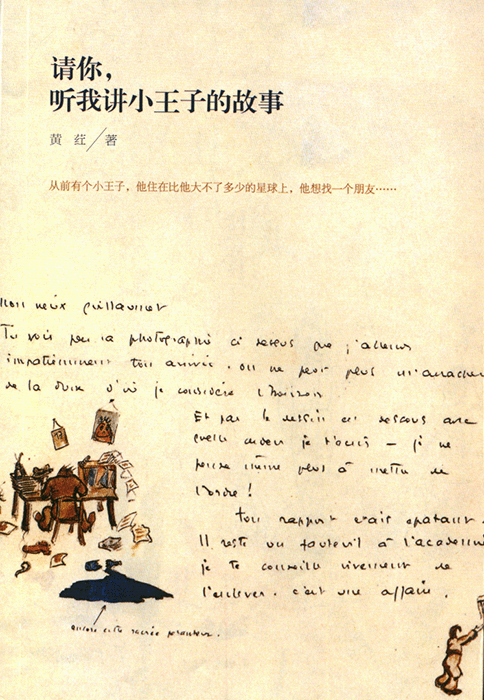 请你，
听我讲小王子的故事
黄荭／著
从前有个小王子，他住在比他大不了多少的星球上，他想找一个朋友……
mon vieux Guillaumet
Tu vois par la photographie ci dessus que j'attends
impatiemment ton arrivée. On ne peut plus m'arracher
de la dune d'où je considère l'horizon
Et par le dessin ci dessous avec
quelle ardeur je t'écris – je ne
pense même plus à mettre de
l'ordre!
Ton rapport était épatant.
Il reste un fauteuil à l'académie
je te conseille vivement de
l'enlever. c'est une affaire.
encore cette sacrée